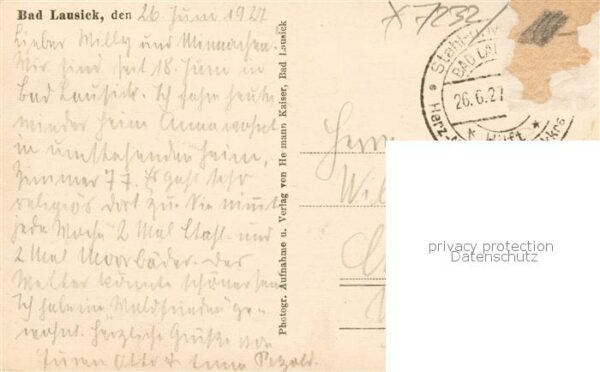 Bad Lausick, den 26. Juni 1927
Lieber Willy und Minnachen.
Wir sind seit 18. Juni in
Bad Lausick. Ich fahre heute
wieder heim Anna wohnt
in umstehenden Heim,
Zimmer 77. Es geht sehr
religiös dort zu. Sie nimmt
jede Woche 2 Mal Stahl- und
2 Mal Moorbäder. Das
Wetter könnte schöner sein
Ich habe im Waldfrieden ge-
wohnt. Herzliche Grüße von
Euren Otto & Anna Petzold.
Photogr. Aufnahme u. Verlag von Hermann Kaiser, Bad Lausick
X 7232/
Stahl-
BAD LA
26.6.27
* Hilft *
Herz-
Herrn
Wil
privacy protection
Datenschutz